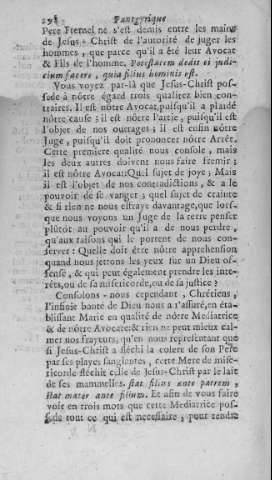 298 Panegyrique
Pere Eternel ne s'est demis entre les mains
de Jesus-Christ de l'autorité de juger les
hommes, que parce qu'il a été leur Avocat
& Fils de l'homme, Potestatem dedit ei judi-
cium facere, quia filius hominis est.
Vous voyez par-là que Jesus-Christ pos-
sede à nôtre égard trois qualitez bien con-
traires. Il est nôtre Avocat, puisqu'il a plaidé
nôtre cause ; il est nôtre Partie, puisqu'il est
l'objet de nos outrages ; il est enfin nôtre
Juge, puisqu'il doit prononcer nôtre Arrêt.
Cette premiere qualité nous console, mais
les deux autres doivent nous faire fremir ;
il est nôtre Avocat: Quel sujet de joye ; Mais
il est l'objet de nos contradictions, & a le
pouvoir de se vanger ; quel sujet de crainte
& si rien ne nous effraye davantage, que lors-
que nous voyons un Juge de la terre penser
plutôt au pouvoir qu'il a de nous perdre,
qu'aux raisons qui le portent de nous conser-
ver : Quelle doit être nôtre apprehension
quand nous jettons les yeux sur un Dieu of-
fensé, & qui peut également prendre les inte-
rêts, ou de sa misericorde, ou de sa justice ?
Consolons-nous cependant, Chrétiens,
l'infinie bonté de Dieu nous a r'assuré, en éta-
blissant Marie en qualité de nôtre Mediatrice
& de nôtre Avocate: & rien ne peut mieux cal-
mer nos frayeurs, qu'en nous representant que
si Jesus-Christ a fléchi la colere de son Pere
par ses playes sanglantes, cette Mere de mise-
ricorde fléchit celle de Jesus-Christ par le lait
de ses mammelles. stat filius ante patrem,
stat mater ante filium. Et afin de vous faire
voir en trois mots que cette Mediatrice pos-
sede tout ce qui est necessaire, pour rendre